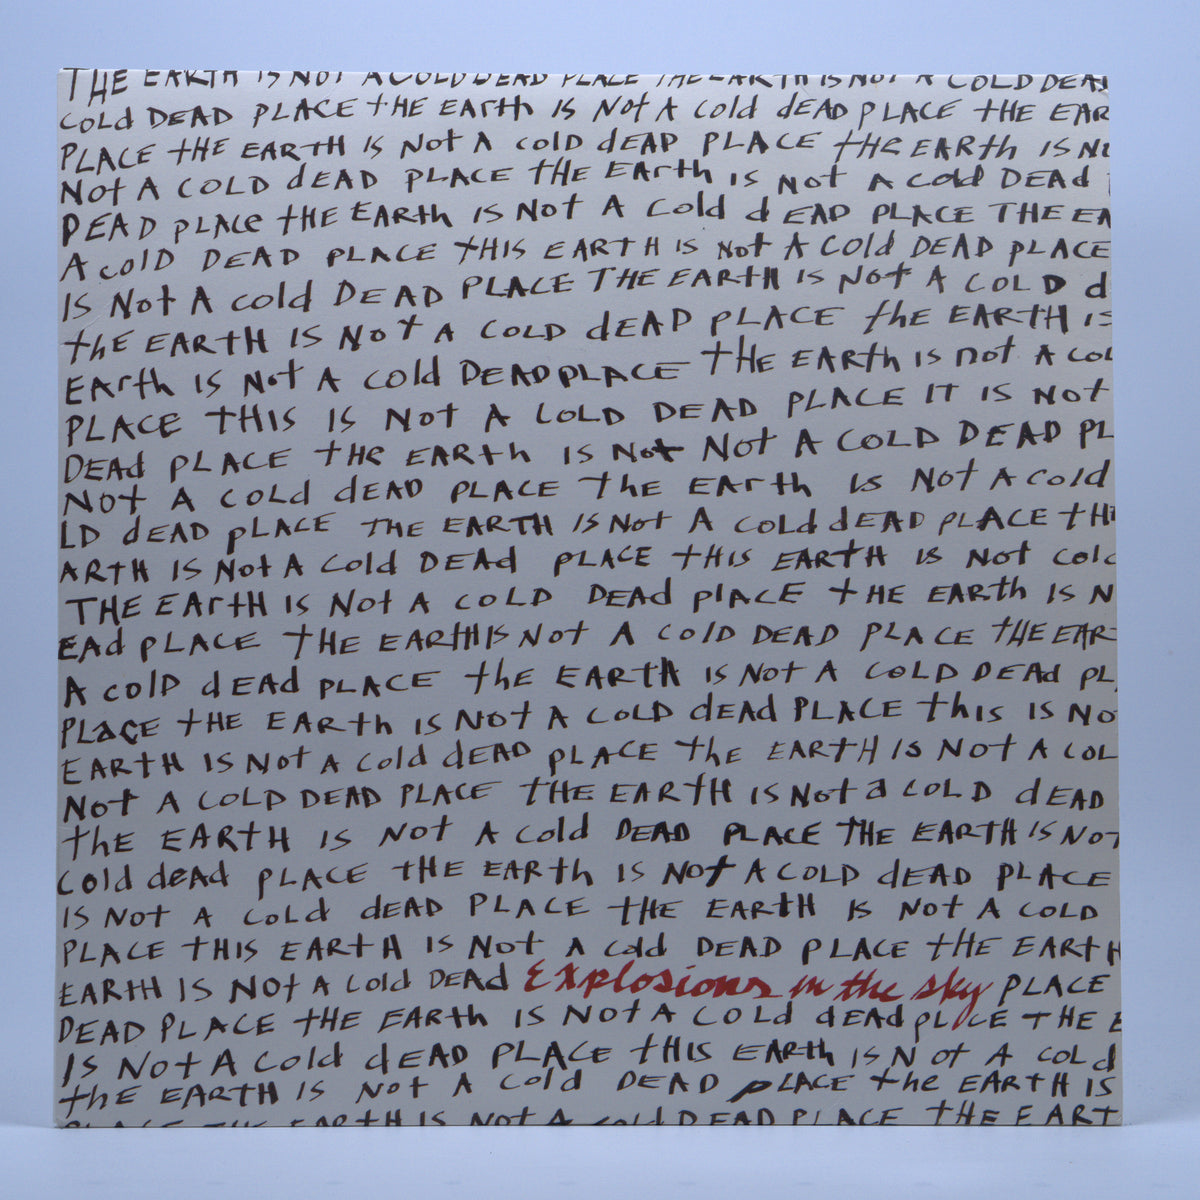 THE EARTH IS NOT A COLD DEAD PLACE THE EARTH IS NOT A COLD DEA
COLd DEAD PLACE tHE EARth IS Not A cold deAD PLACE tHE EAR
PLACE tHE EARTH IS Not A cold dEAD PLACE tHe EARth IS N
Not A COLD dEAD PLACE THE EArth IS Not A cold DEAd
DEAD pLAce tHE EARth IS Not A Cold d EAD PLACE THE EA
A colD DEAD PLACE tHIS EARTH IS Not A Cold DEAD pLACE
IS Not A cold DEAD PLACE THE EARtH IS Not A COLD d
thE EARtH IS Not A COLD dEAD pLACE the EARTH IS
EArth IS Not A cold DEAD pLACE tHE EARth IS not A COL
PLACE tHIS IS Not A COLD DEAD PLACE IT IS Not
DEAd pLACE tHe EARth IS Not Not A COLD DEAD PL
NOt A COLd dEAD PLACE the EArth IS Not A cold
LD dEAD pLACE THE EARTH IS Not A Cold dEAD pLACE tH
ARTH IS Not A Cold DEAd PLACE tHIS EARtH IS Not col
THE EArtH IS Not A COLD DEAd plACE tHE EARth IS N
EAd pLACE tHE EARtH IS Not A COlD DEAD PLACE tHE EAR
A colD dEAd pLACE the EARtH IS Not A COLD DEAd pL
PLAcE tHE EARth IS Not A COLD dEAd PLACE this IS No
EARTH IS Not A cold dEAD pLACE the EARtH IS Not A COL
Not A COLD DEAD PLACE tHE EARtH IS Not a COLD dEAD
thE EARtH IS Not A Cold DEAD PLACE tHE EARtH IS Not
Cold deAd pLACE tHE EARth IS Not A COLD dEAD PLACE
IS Not A Cold dEAD PLACE tHE EARtH IS Not A COLD
PLACE tHIS EARtH IS Not A cold DEAD PLACE tHE EARtH
EARtH IS Not A Cold DEAd Explosions in the sky PLACE
DEAD PLACE tHE EARth IS Not A COLd dEAd pLACE THE E
IS Not A Cold dEAD PLACE tHIS EARth IS Not A COLd
thE EARtH IS Not A Cold DEAD pLACE the EARtH IS
PLACE THE EARTH IS NOT A cold DEAD PLACE tHE EART